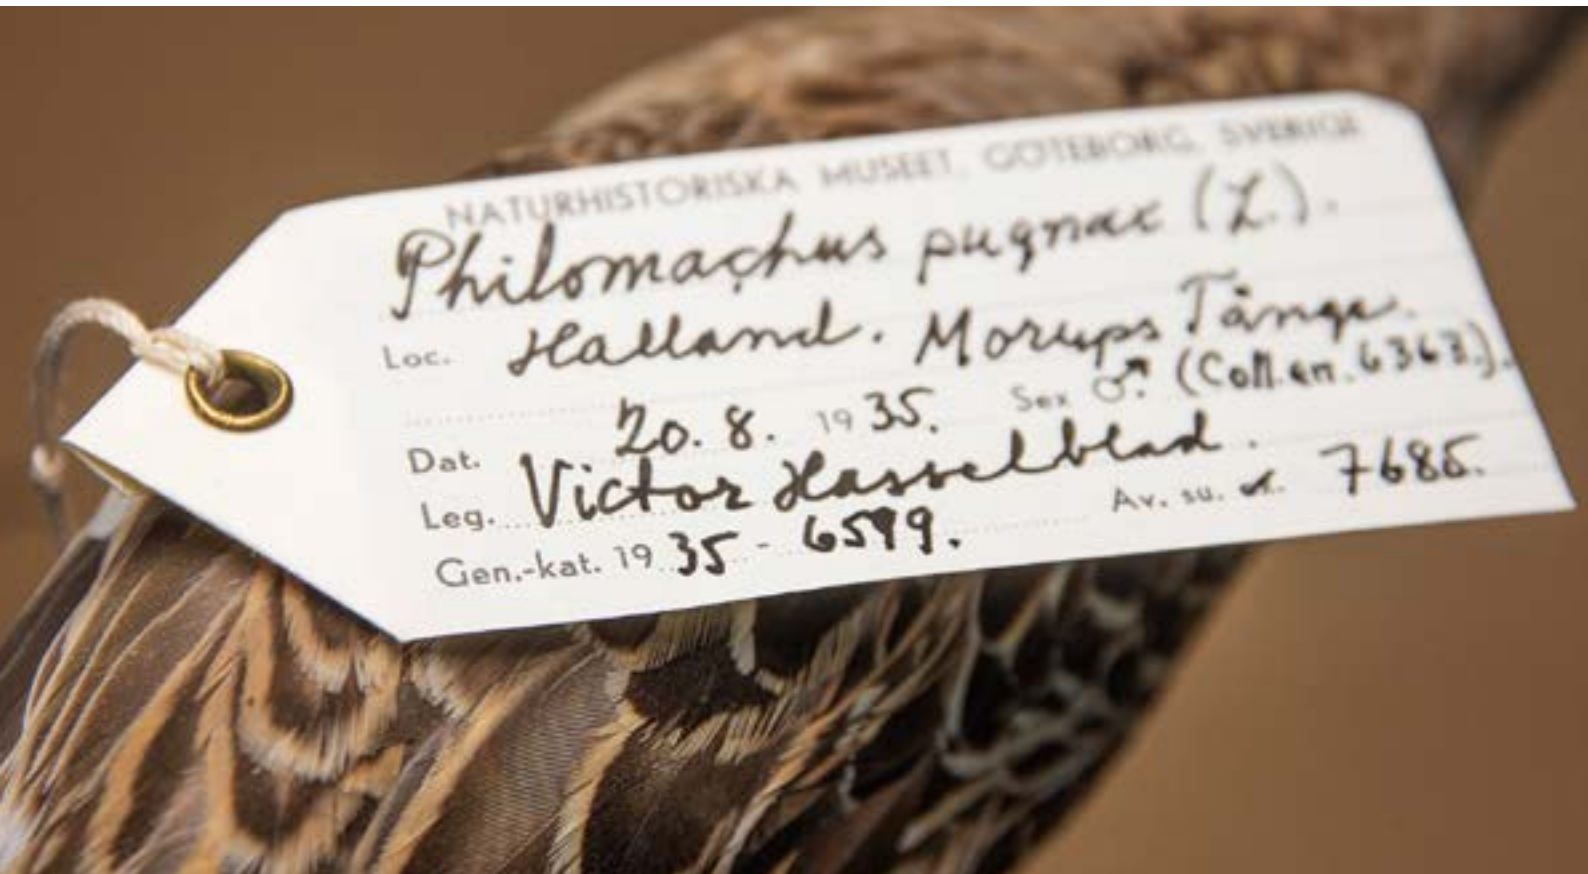 NATURHISTORISKA MUSEET, GÖTEBORG, SVERIGE
Philomachus pugnax (L.).
Loc. Halland. Morups Tånge.
Dat. 20. 8. 1935. Sex ♂. (Coll. an. 6363.).
Leg. Victor Hasselblad.
Gen.-kat. 1935 - 6599. Av. su. 7685.